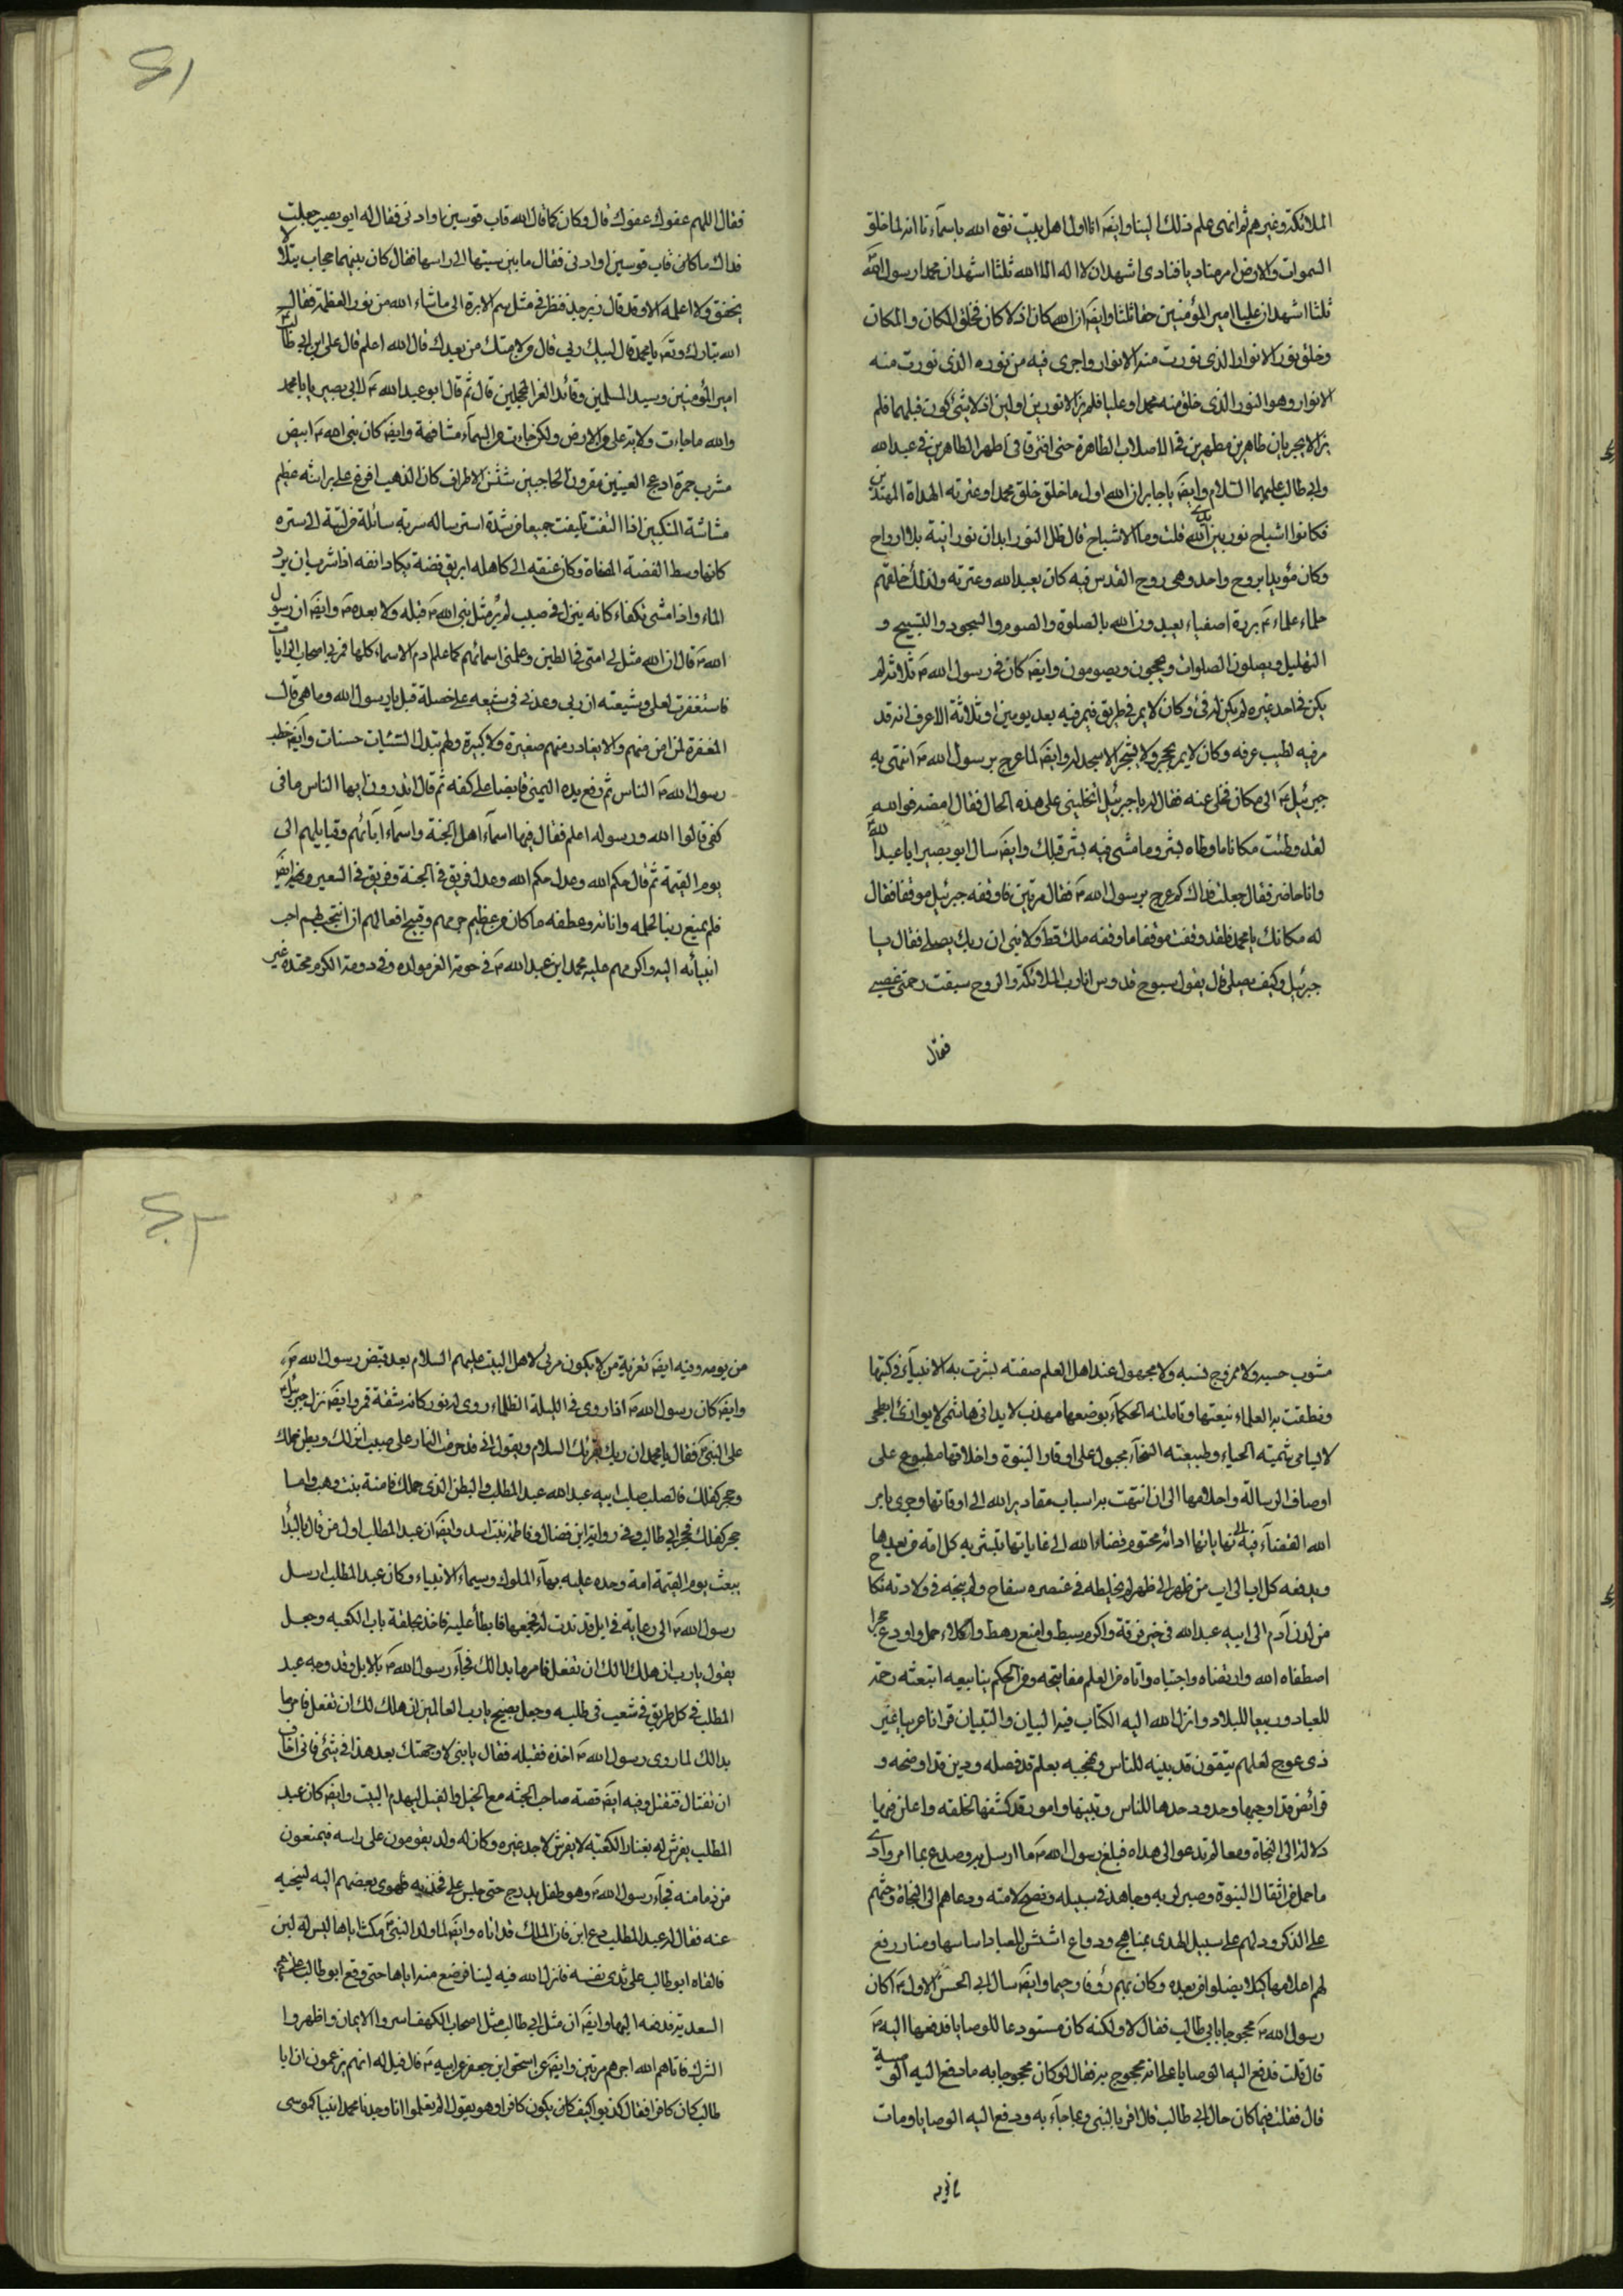 الملائكة وغيرهم ثم انهى علم ذلك الينا وايضَ انا اول اهل بيت نوه الله باسمآءنا انه لما خلق
السموات والارض امر مناديا فنادى اشهد ان لا اله الا الله ثلثا اشهد ان محمدا رسول الله
ثلثا اشهد ان عليا امير المؤمنين حقا ثلثا وايضَ ان الله كان اذ لا كان فخلق المكان والمكان
وخلق نور الانوار الذى نورت منه الانوار واجرى فيه من نوره الذى نورت منه
الانوار وهو النور الذى خلق منه محمدا وعليا فلم يزالا نورين اولين اذ لا شئ كون قبلهما فلم
يزالا يجريان طاهرين مطهرين فى الاصلاب الطاهرة حتى افترقا فى اطهر الطاهرين فى عبد الله
وابى طالب عليهما السلام وايضَ يا جابر ان الله اول ما خلق خلق محمدا وعترته الهداة المهتدين
فكانوا اشباح نور بين يدى الله قلت وما الاشباح قال ظل النور ابدان نورانية بلا ارواح
وكان مؤيدا بروح واحد وهى روح القدس فيه كان يعبد الله وعترته ولذلك خلقهم
حلماء علماء بررة اصفياء يعبدون الله بالصلوة والصوم والسجود والتسبيح و
التهليل ويصلون الصلوات ويحجون ويصومون وايضَ كان فى رسول الله ص ثلاثة لم
يكن فى احد غيره لم يكن له فئ وكان لا يمر فى طريق فيمر فيه بعد يومين او ثلاثة الا عرف انه قد
مر فيه لطيب عرفه وكان لا يمر بحجر ولا بشجر الا سجد له وايضَ لما عرج برسول الله ص انتهى به
جبرئيل ع الى مكان فخلى عنه فقال له يا جبرئيل اتخلينى على هذه الحال فقال امضه فوالله
لقد وطئت مكانا ما وطاه بشر وما مشى فيه بشر قبلك وايضَ سال ابو بصير ابا عبد الله
وانا حاضر فقال جعلت فداك كم عرج برسول الله ص فقال مرتين فاوقفه جبرئيل موقفا فقال
له مكانك يا محمد فلقد وقفت موقفا ما وقفه ملك قط ولا نبى ان ربك يصلى فقال يا
جبرئيل وكيف يصلى قال يقول سبوح قدوس انا رب الملائكة والروح سبقت رحمتى غضبى
فقال
٤١
فقال اللهم عفوك عفوك قال وكان كما قال الله قاب قوسين او ادنى فقال له ابو بصير جعلت
فداك ما كان قاب قوسين او ادنى فقال ما بين سيتها الى راسها فقال كان بينهما حجاب يتلالا
يخفق ولا اعلمه الا وقد قال زبرجد فنظر فى مثل سم الابرة الى ما شاء الله من نور العظمة فقال
الله تبارك وتعَ يا محمد قال لبيك ربى قال من لامتك من بعدك قال الله اعلم قال على ابن ابى طالب
امير المؤمنين وسيد المسلمين وقائد الغر المحجلين قال ثم قال ابو عبد الله ع لابى بصير يا بامحمد
والله ما جاءت ولاية على من الارض ولكن جاءت من السمآء مشافهة وايضَ كان نبى الله ص ابيض
مشرب حمرة ادعج العينين مقرون الحاجبين شثن الاطراف كان الذهب افرغ على براثنه عظيم
مشاشة المنكبين اذا التفت يلتفت جميعا من شدة استرساله سربه سائلة من لبته الى سرته
كانها وسط الفضة المصفاة وكان عنقه الى كاهله ابريق فضة يكاد انفه اذا شرب ان يرد
الماء واذا مشى تكفاء كانه ينزل فى صبب لم ير مثل نبى الله ص قبله ولا بعده ص وايضَ ان رسول
الله ص قال ان الله مثل لى امتى فى الطين وعلمنى اسمائهم كما علم ادم الاسماء كلها فمر بى اصحاب الرايات
فاستغفرت لعلى وشيعته ان ربى وعدنى فى شيعه على خصلة قيل يا رسول الله وما هى قال
المغفرة لمن امن منهم والا يغادر منهم صغيرة ولا كبيرة ولهم تبدل السئيات حسنات وايضَ خطب
رسول الله ص الناس ثم رفع يده اليمنى قابضا على كفه ثم قال اتدرون ايها الناس ما فى
كفى قالوا الله ورسوله اعلم فقال فيها اسمآء اهل الجنة واسماء ابائهم وقبايلهم الى
يوم القيمة ثم قال حكم الله وعدل حكم الله وعدل فريق فى الجنة وفريق فى السعير وفيه ايضَ
فلم يمنع ربنا لحلمه واناته وعطفه ما كان من عظيم جرمهم وقبيح افعالهم ان انتجب لهم احب
انبيائه اليه واكرمهم عليه محمد ابن عبد الله ص فى حومة العز مولده وفى دومة الكرم محتده غير
مشوب حسبه ولا ممزوج نسبه ولا مجهول عند اهل العلم صفته بشرت به الانبيآء فى كتبها
ونطقت به العلماء بنعتها وتاملته الحكمآء بوصفها مهذب لا يدانى هاشمى لا يوازى ابطحى
لا يسامى شيمته الحياء وطبيعته السخآء مجبول على اوقار النبوة واخلاقها مطبوع على
اوصاف الرسالة واحلامها الى ان انتهت به اسباب مقادير الله الى اوقاتها وجرى بامر
الله القضآء فيه الى نهاياتها اداه محتوم قضاء الله الى غاياتها تبشر به كل امة من بعدها
ويدفعه كل اب الى اب من ظهر الى ظهر لم يخلطه فى عنصره سفاح ولم ينجسه فى ولادته نكاح
من لدن آدم الى ابيه عبد الله فى خير فرقة واكرم سبط وامنع رهط واكلاء حمل واودع حجر
اصطفاه الله وارتضاه واجتباه واتاه من العلم مفاتيحه ومن الحكم ينابيعه ابتعثه رحمة
للعباد وربيعا للبلاد وانزل الله اليه الكتاب فيه البيان والتبيان قرانا عربيا غير
ذى عوج لعلهم يتقون قد بينه للناس ونهجه بعلم قد فصله ودين قد اوضحه و
فرائض قد اوجبها وحدود حدها للناس وبينها وامور قد كشفها لخلقه واعلن فيها
دلالة الى النجاة ومعالم تدعو الى هداه فبلغ رسول الله ص ما ارسل به وصدع بما امر وادى
ما حمل من اثقال النبوة وصبر لربه وجاهد فى سبيله ونصح لامته ودعاهم الى النجاة وحثهم
على الذكر ودلهم على سبيل الهدى بمناهج ودواع اسس للعباد اساسها ومنار رفع
لهم اعلامها كيلا يضلوا من بعده وكان بهم رؤفا رحيما وايضَ سال ابى الحسن الاول ع اكان
رسول الله ص محجوجا بابى طالب فقال لا ولكنه كان مستودعا للوصايا فدفعها اليه ص
قال قلت فدفع اليه الوصايا على انه محجوج به فقال لو كان محجوجا به ما دفع اليه الوصية
قال فقلت فما كان حال ابى طالب قال اقر بالنبى وبما جآء به ودفع اليه الوصايا ومات
من يومه
٤٢
من يومه وفيه ايضَ تعزية من لا يكون مرئى لاهل البيت عليهم السلام بعد قبض رسول الله ص
وايضَ كان رسول الله ص اذا روى فى الليلة الظلماء روى له نور كانه شقة قمر وايضَ نزل جبرئيل
على النبى ص فقال يا محمد ان ربك يقرئك السلام ويقول انى قد حرمت النار على صلب انزلك وبطن حملك
وحجر كفلك فالصلب صلب ابيه عبد الله عبد المطلب والبطن الذى حملك فامنة بنت وهب واما
حجر كفلك فحجر ابى طالب وفى رواية ابن فضال وفاطمة بنت اسد وايضَ ان عبد المطلب اول من قال بالبدا
يبعث يوم القيمة امة وحده عليه بهآء الملوك وسيماء الانبياء وكان عبد المطلب ارسل
رسول الله ص الى رعاته فى ابل قد ندت له يجمعها فابطأ عليه فاخذ بحلقة باب الكعبه وجعل
يقول يا رب اتهلك الك ان تفعل فامر ما بدالك فجآء رسول الله ص بالابل وقد وجه عبد
المطلب فى كل طريق فى شعب فى طلبه وجعل يصيح يا رب العالمين اتهلك الك ان تفعل فامر ما
بدالك لما روى رسول الله ص اخذه فقبله فقال يا بنى لا وجهتك بعد هذا فى شئ فانى اخاف
ان تغتال فتقتل وفيه ايضَ قصة صاحب الحبشه مع الخيل والفيل ليهدم البيت وايضَ كان عبد
المطلب يفرش له بفناء الكعبة لا يفرش لاحد غيره وكان له ولد يقومون على راسه فيمنعون
من دنا منه فجآء رسول الله ص وهو طفل يدرج حتى جلس على فخذيه فاهوى بعضهم اليه لينحيه
عنه فقال له عبد المطلب دع ابنى فان الملك قد اتاه وايضَ لما ولد النبى ص مكث اياما ليس له لبن
فالقاه ابو طالب على ثدى نفسه فانزل الله فيه لبنا فرضع منه اياما حتى وقع ابو طالب على حليمة
السعدية فدفعه اليها وايضَ ان مثل ابى طالب مثل اصحاب الكهف اسروا الايمان واظهروا
الشرك فاتاهم الله اجرهم مرتين وايضَ عن اسحق ابن جعفر عن ابيه ع قال قيل له انهم يزعمون ان ابا
طالب كان كافرا فقال كذبوا كيف كان يكون كافرا وهو يقول الم تعلموا انا وجدنا محمدا نبيا كموسى